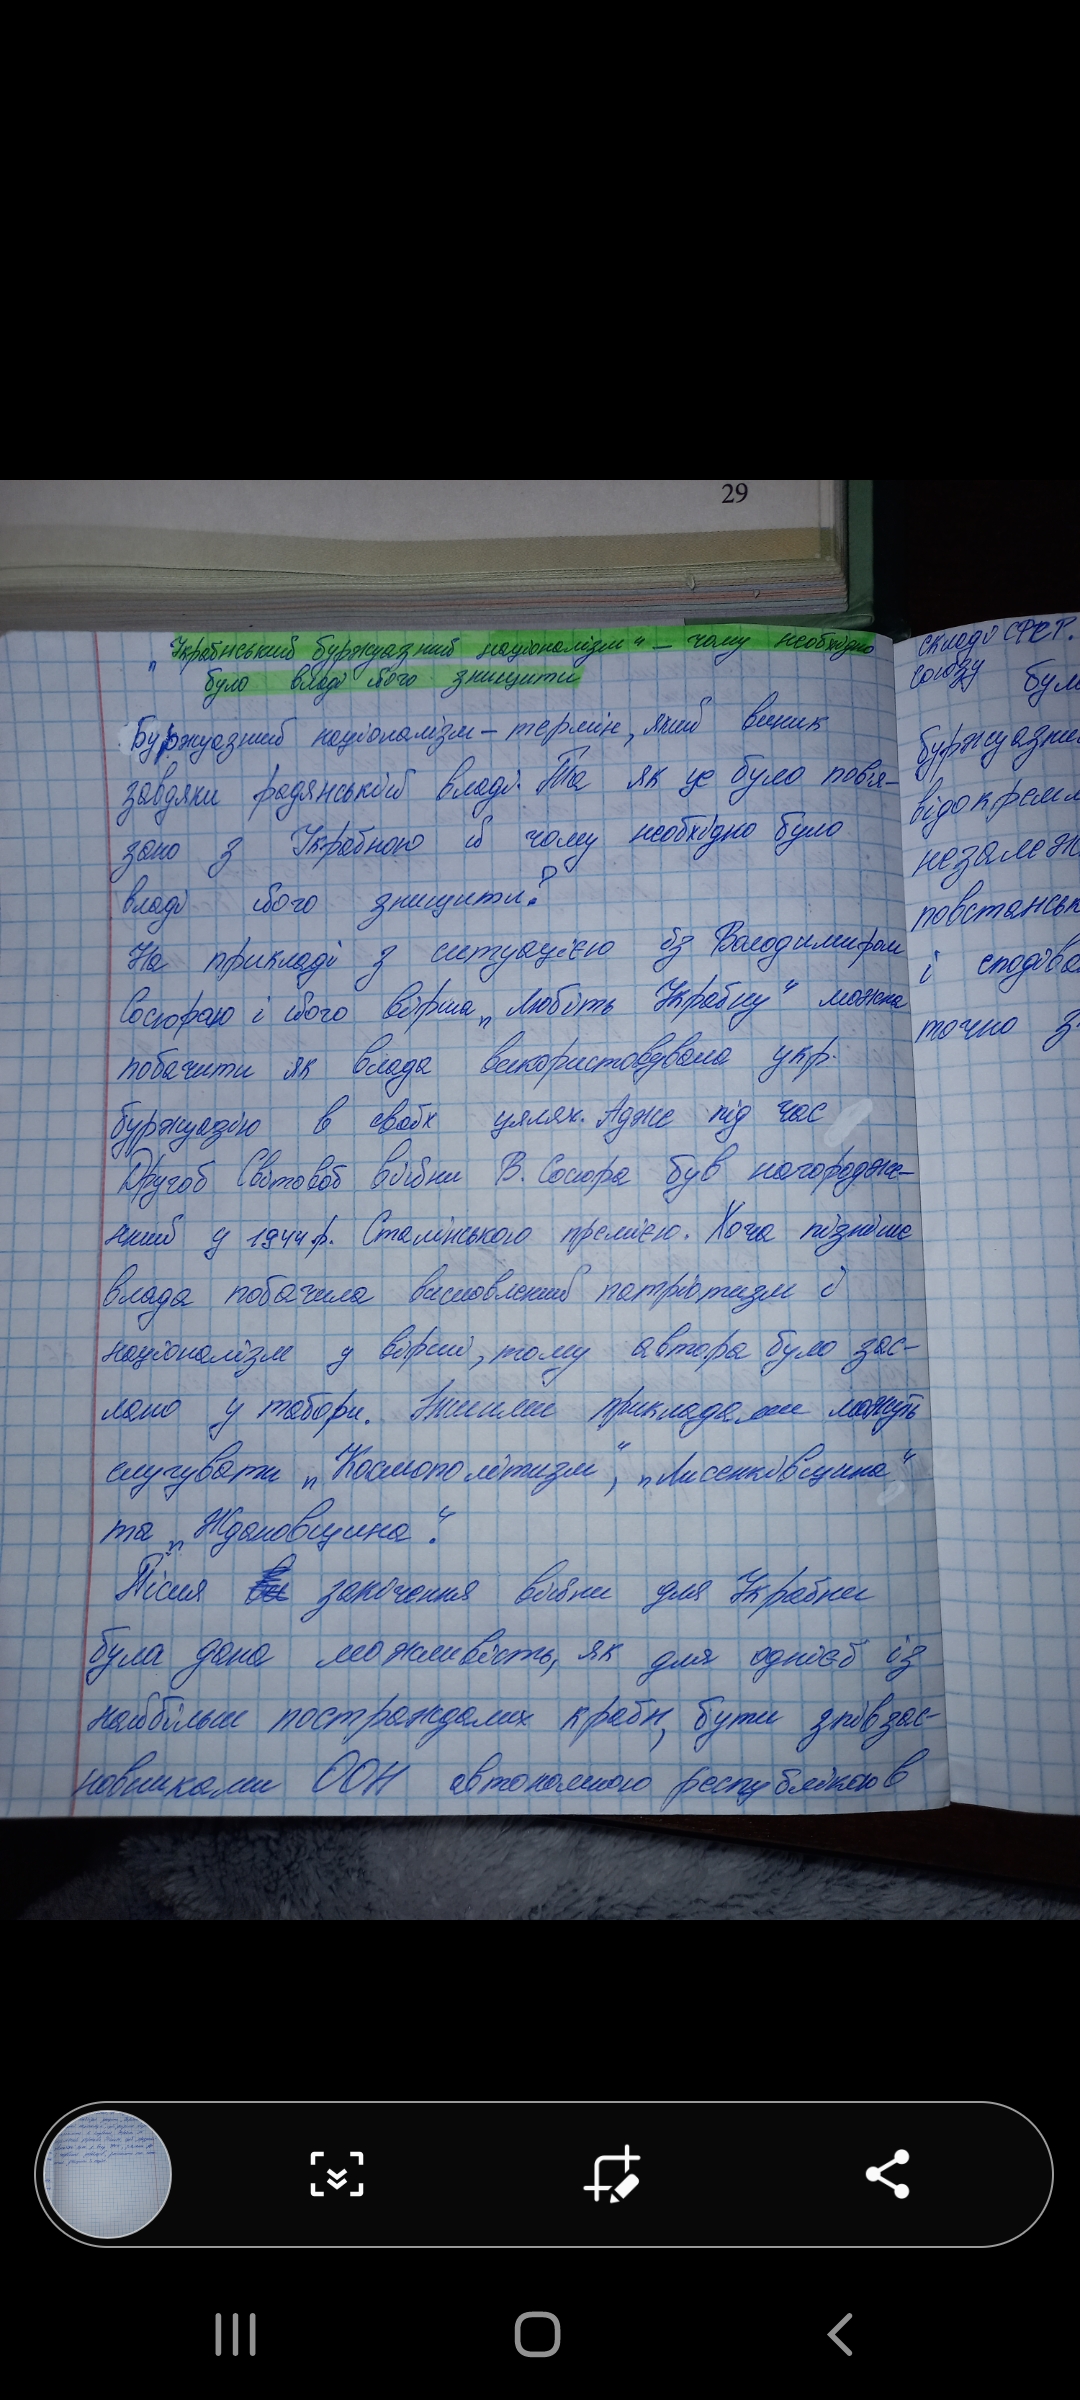 29
„Український буржуазний націоналізм“ – чому необхідно
було владі його знищити
Буржуазний націоналізм – термін, який виник
завдяки радянській владі. Та як це було пов'я-
зано з Україною й чому необхідно було
владі його знищити?
На прикладі з ситуацією із Володимиром
Сосюрою і його вірша „Любіть Україну“ можна
побачити як влада використовувала укр.
буржуазію в своїх цілях. Адже під час
Другої Світової війни В. Сосюра був нагородже-
ний у 1944р. Сталінською премією. Хоча пізніше
влада побачила висловлений патріотизм і
націоналізм у вірші, тому автора було зас-
лано у табори. Іншими прикладами можуть
слугувати „Космополітизм“, „Лисенківщина“
та „Ждановщина“.
Після закічення війни для України
була дана можливість, як для однієї із
найбільш постраждалих країн, бути співзас-
новниками ООН автономною республікою в
складі СРСР.
союзу були
буржуазни
відокремл
незалежн
повстанськ
і сподіва
точно з